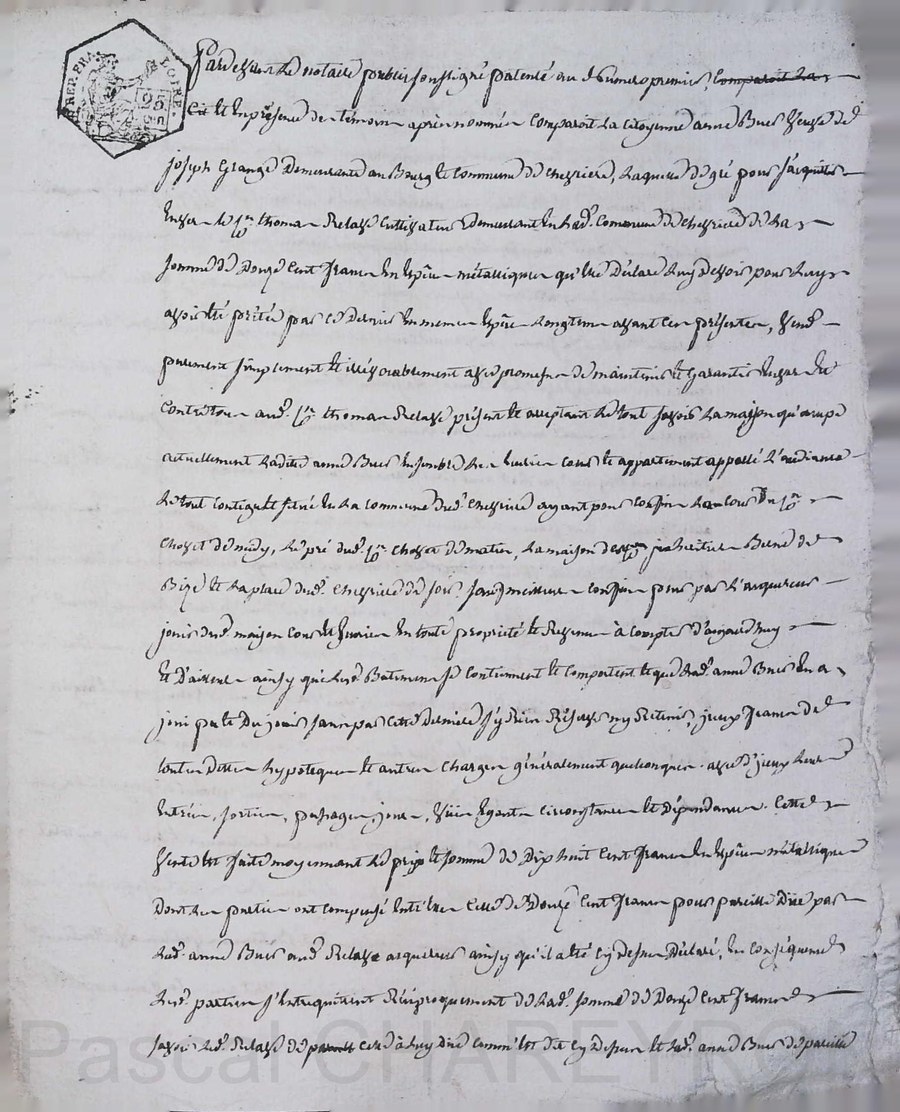 REP. FRA. LOIRE
Pardevant le notaire public soussigné patenté au de numero premier, comparoit la
Cit et En présence des témoins après nommés Comparoit la Citoyenne anne Bués Veuve de
joseph Grange Demeurante au Bourg et Commune de chevrieres, Laquelle de gré pour s'acquitter
Envers le Cen thomas Relave Cultivateur Demeurant En lad. Commune de chevrieres de la
somme de Douze Cent francs En Espèces métalliques qu'elle Déclare luy devoir pour luy
avoir été prêtée par ce Dernier En memes Espèces longtems avant ces présentes, Vend
purement simplement et irrévocablement avec promesse de maintenir et Garantir Envers et
Contre tous aud. Cen thomas Relave présent et acceptant Le tout savoir La maison qu'occupe
actuellement Ladite anne Bués Ensemble Les Ecuries Cour et appartement appellé L'audiance
Le tout Contigu et situé En La Commune dud. chevrieres ayant pour Confins La Cour du Cen
Chovet de , Le pré dud. Cen Chovet de matin, La maison des Cens Berne de
Bize et La place dud. chevrieres de soir sauf meilleurs Confins pour par L'acquereur
jouir desd. maison Cour et Ecuries En toute propriété et Revenus à Compter d'aujourd'huy
Et D'avenir ainsy que Lesd. Batimens se Contiennent et Comportent et que Lad. anne Bués En a
joui pu et Du jouir sans par Cette Derniere s'y Rien Réserver ny Retenir, jceux francs de
toutes Dettes hypoteques et autres Charges généralement quelconques avec d'jceux leurs
Entrées, sorties, passages, jours, Vües Egouts Circonstances et Dépendances. Cette
Vente Est faite moyennant Le prix et somme de Dix huit Cent francs En Espèces métalliques
Dont Les parties ont Compensé Entr'Elles Celle de Douze Cent francs pour pareille Düe par
Lad. anne Bués aud. Relave acquereur ainsy qu'il a été Cy Dessus Déclaré, En Conséquence
Lesd. parties s'Entrequittent Réciproquement de Lad. somme de Douze Cent francs
savoir Led. Relave de Celle à luy düe Comm'Est dit Cy Dessus et Lad. anne Bués de pareille
Pascal CHAREYRON